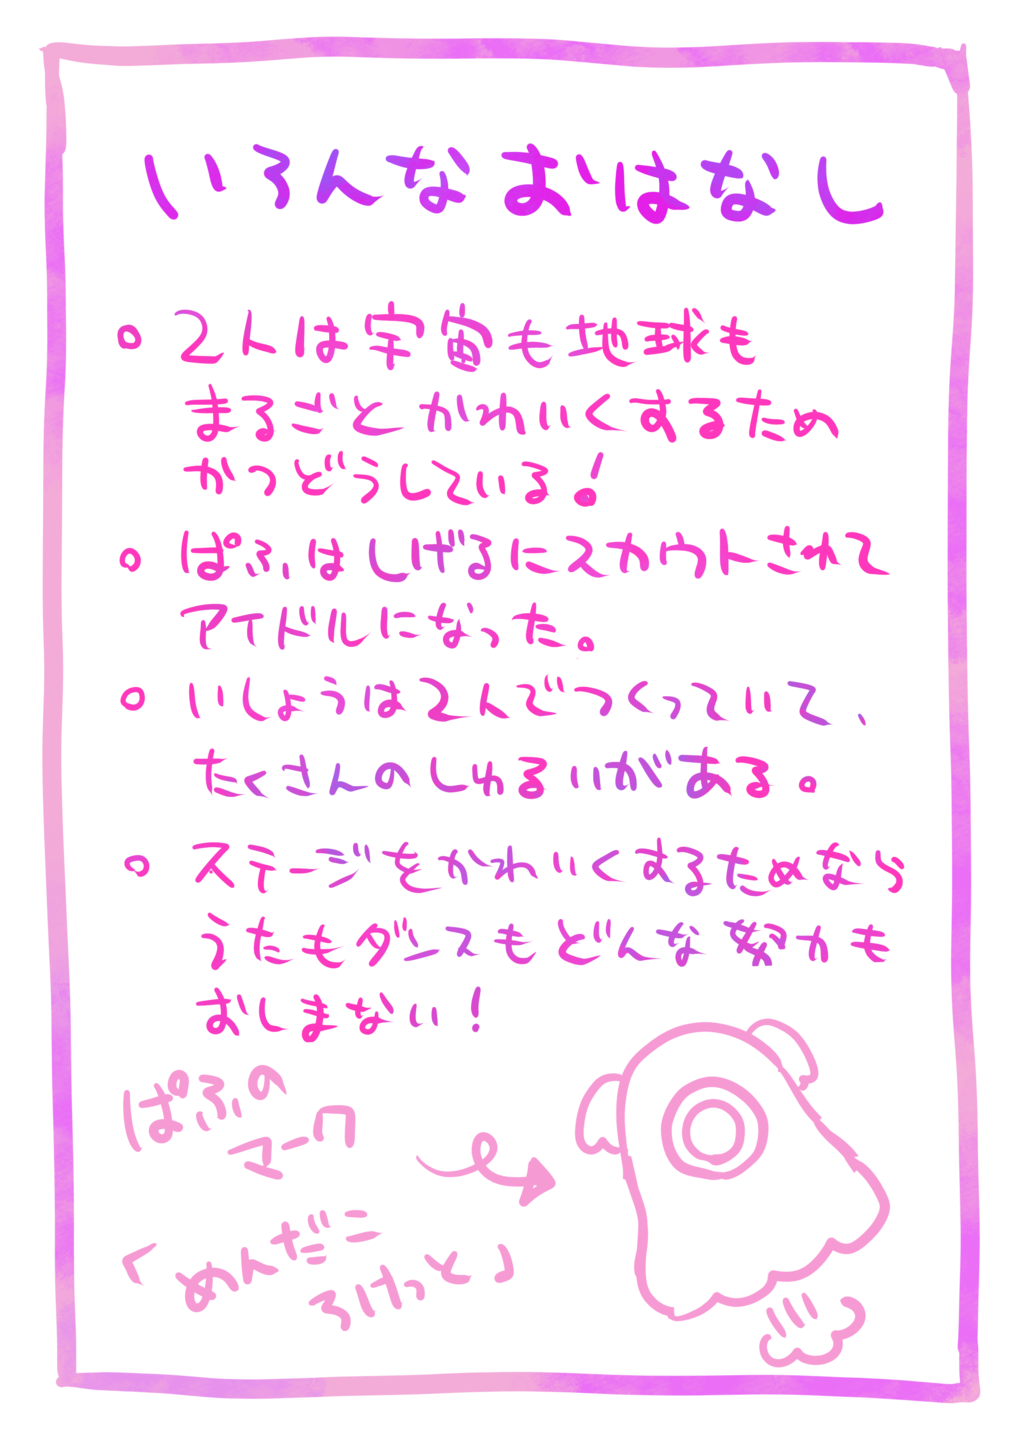 いろんなおはなし
。2人は宇宙も地球も
まるごとかわいくするため
かつどうしている!
。ぱふはしげるにスカウトされて
アイドルになった。
。いしょうは2人でつくっていて、
たくさんのしゅるいがある。
。ステージをかわいくするためなら
うたもダンスもどんな努力も
おしまない!
ぱふの
マーク
「めんだこ
ろけっと」